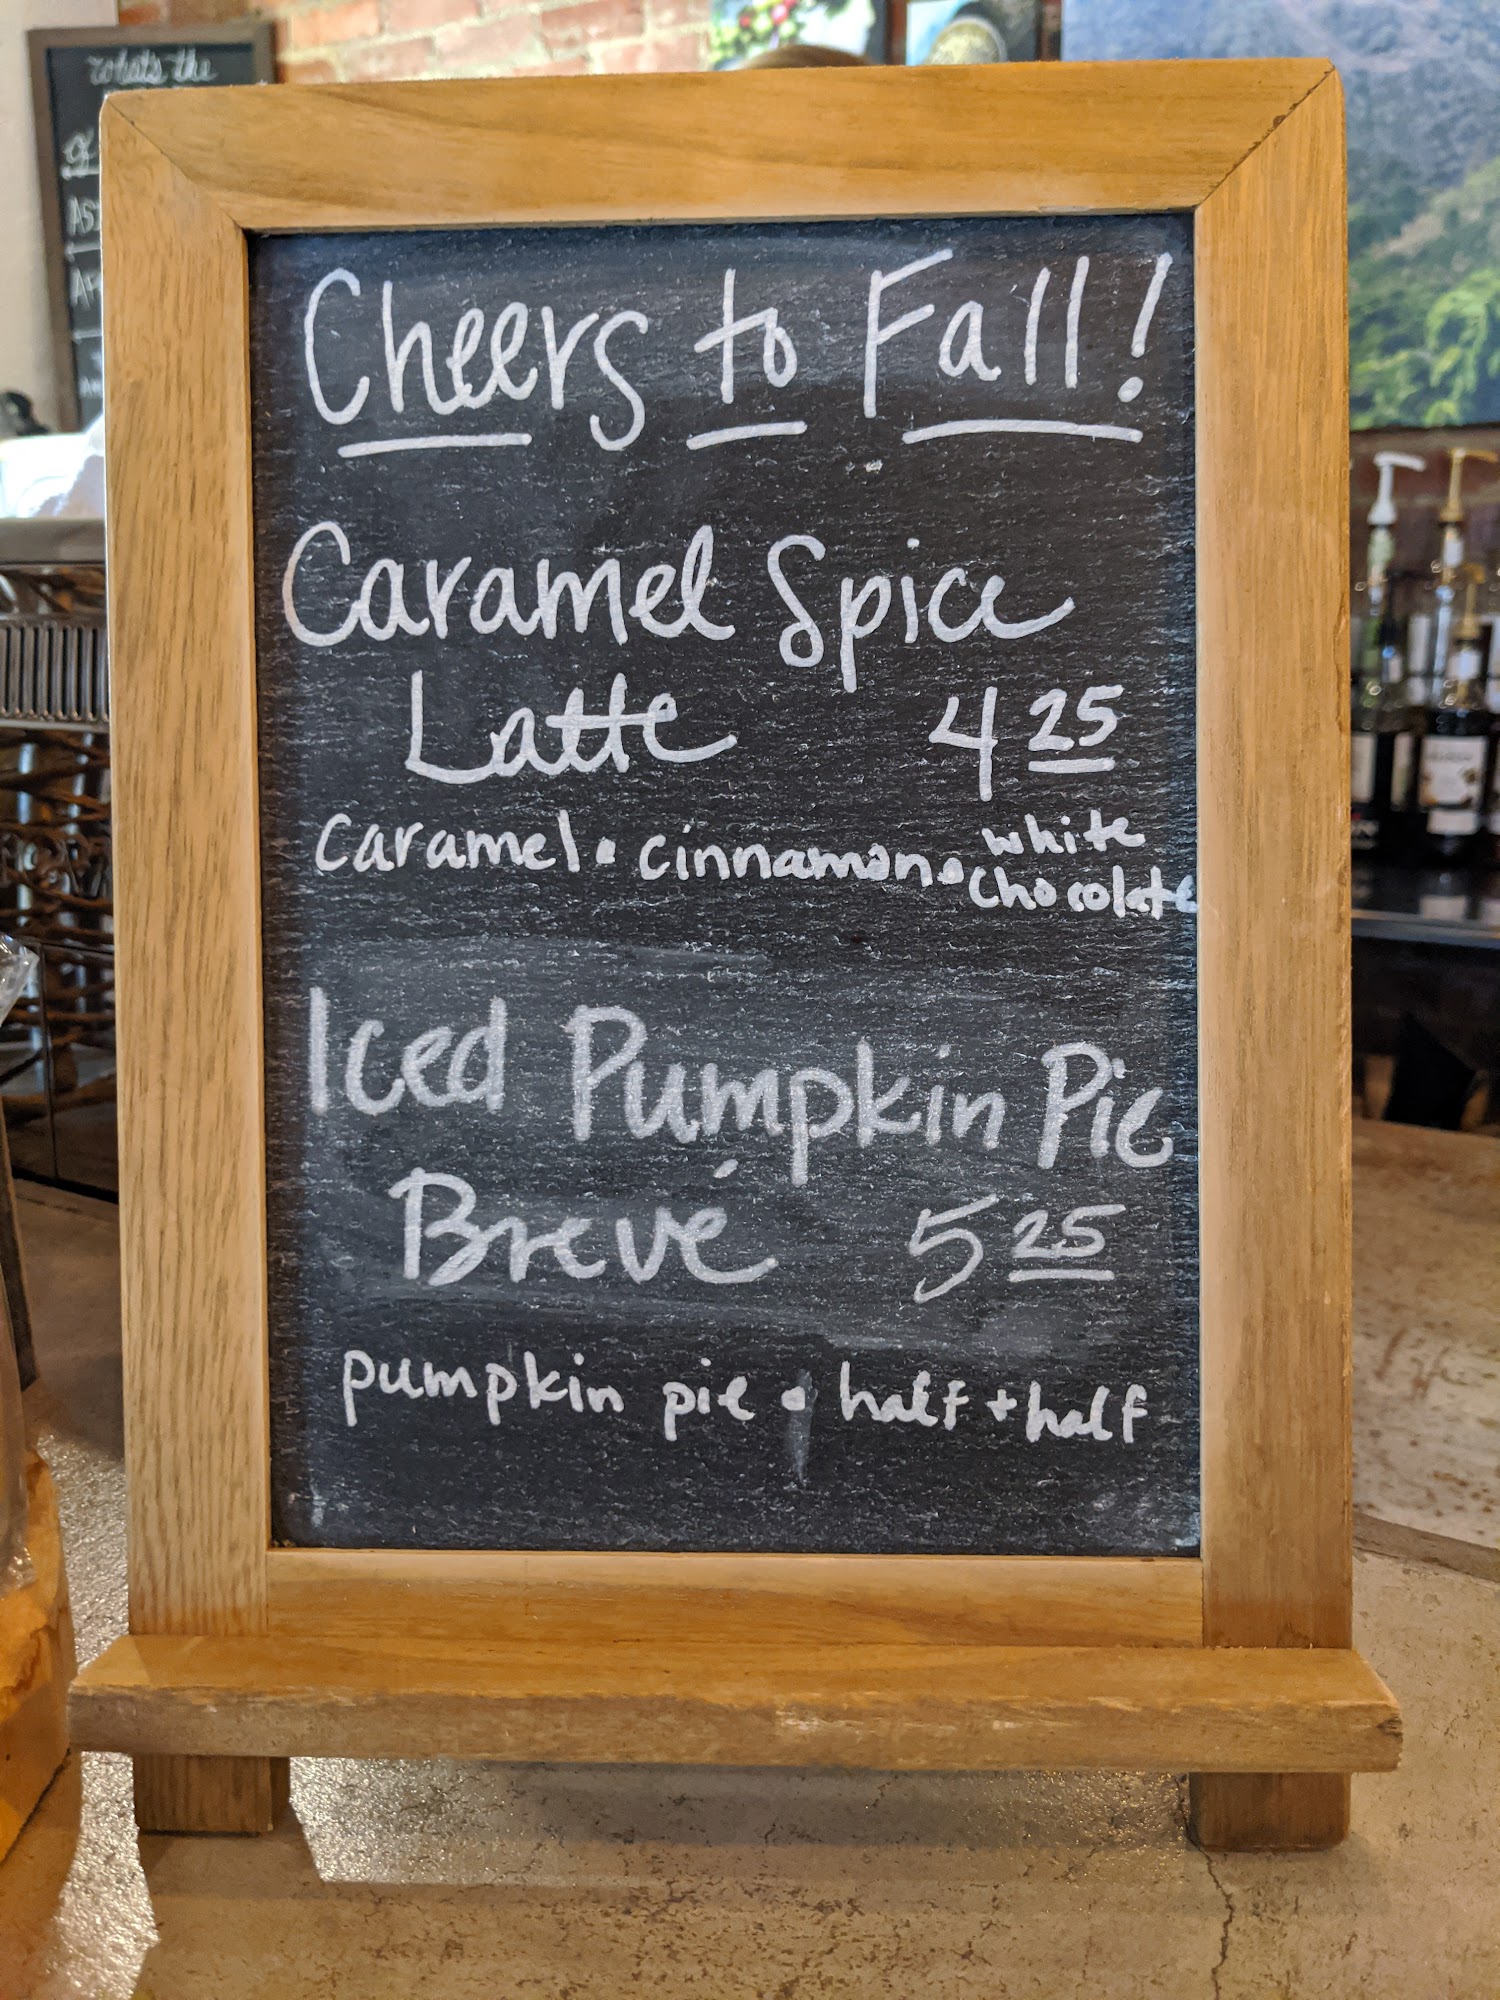 what's the
Cheers to Fall!
Caramel Spice
Latte 4 25
caramel • cinnamon • white chocolate
Iced Pumpkin Pie
Brevé 5 25
pumpkin pie • half + half